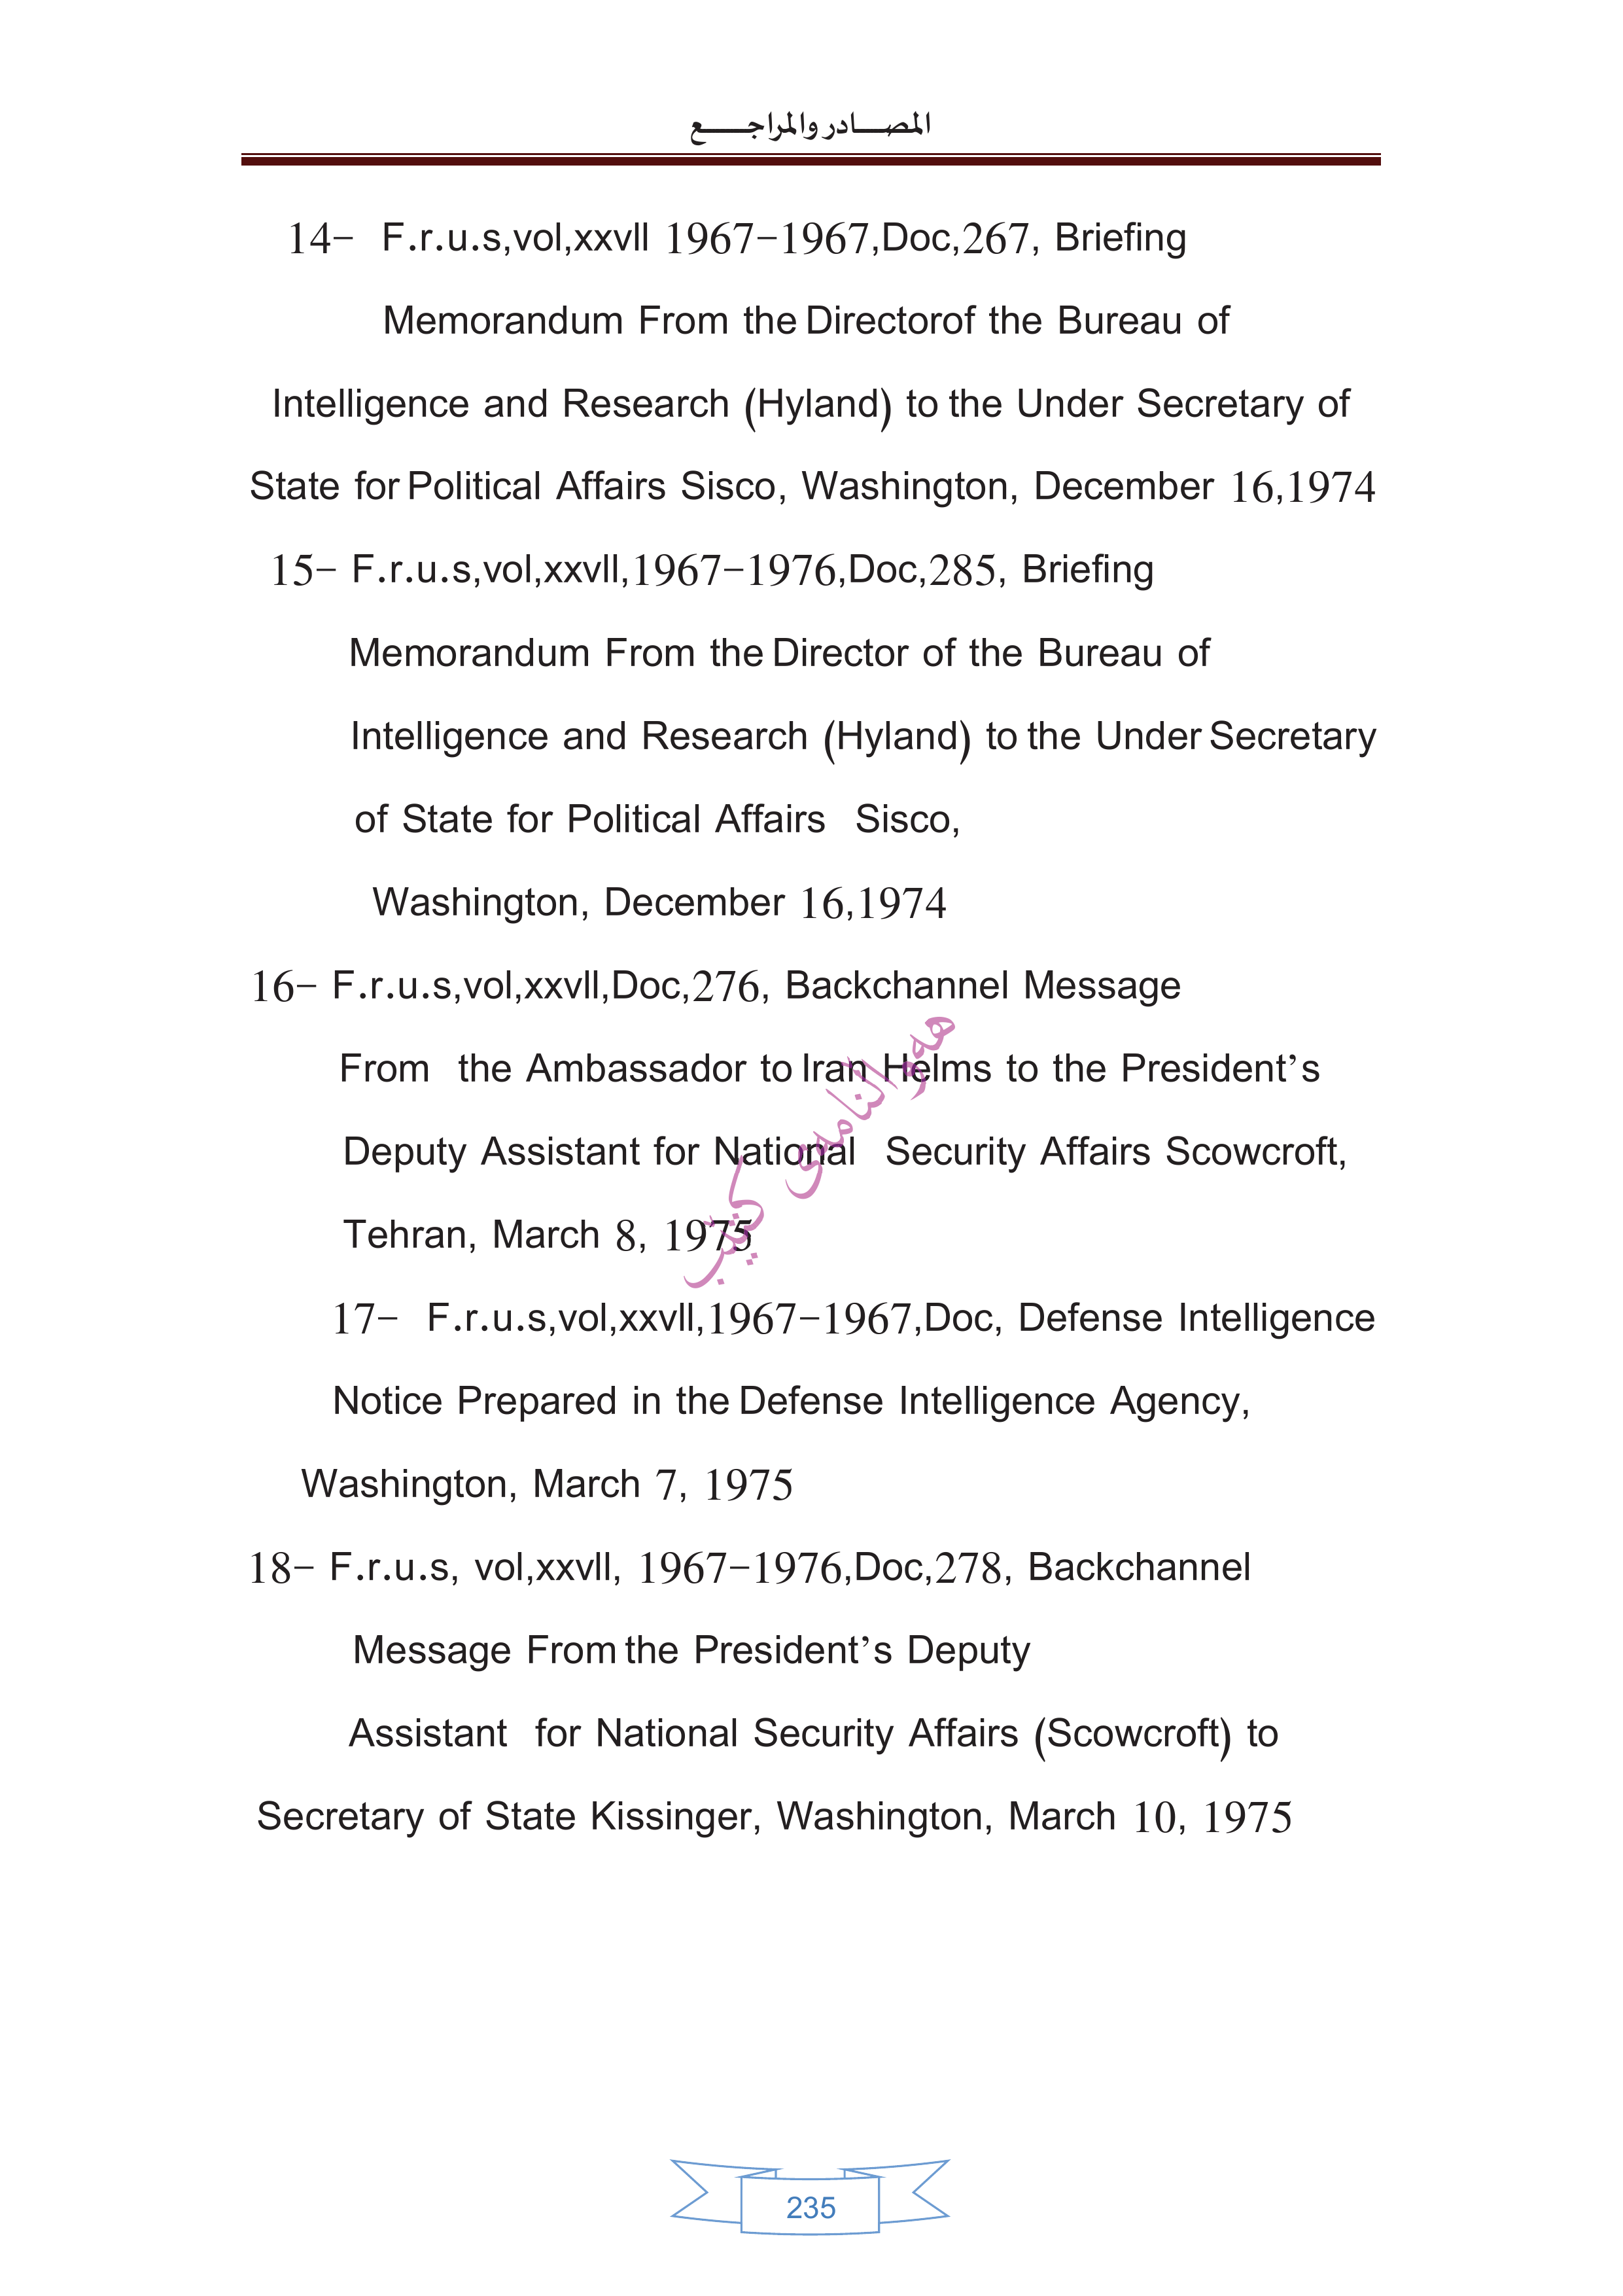 المصـــادر والمراجـــع
14- F.r.u.s,vol,xxvll 1967-1967,Doc,267, Briefing
Memorandum From the Directorof the Bureau of
Intelligence and Research (Hyland) to the Under Secretary of
State for Political Affairs Sisco, Washington, December 16,1974
15- F.r.u.s,vol,xxvll,1967-1976,Doc,285, Briefing
Memorandum From the Director of the Bureau of
Intelligence and Research (Hyland) to the Under Secretary
of State for Political Affairs Sisco,
Washington, December 16,1974
16- F.r.u.s,vol,xxvll,Doc,276, Backchannel Message
From the Ambassador to Iran Helms to the President’s
Deputy Assistant for National Security Affairs Scowcroft,
Tehran, March 8, 1975
هەواڵنامەی کتێب
17- F.r.u.s,vol,xxvll,1967-1967,Doc, Defense Intelligence
Notice Prepared in the Defense Intelligence Agency,
Washington, March 7, 1975
18- F.r.u.s, vol,xxvll, 1967-1976,Doc,278, Backchannel
Message From the President’s Deputy
Assistant for National Security Affairs (Scowcroft) to
Secretary of State Kissinger, Washington, March 10, 1975
235